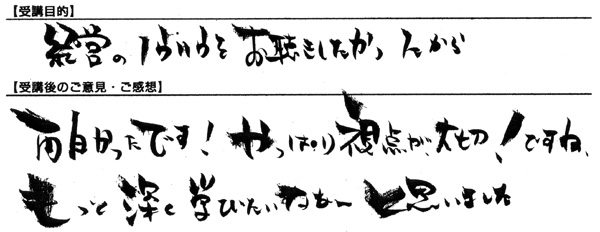 【受講目的】
経営の をお聴きしたかったから
【受講後のご意見・ご感想】
面白かったです！やっぱり視点が、大切！ですね、
もっと深く学びたいなぁ〜と思いました